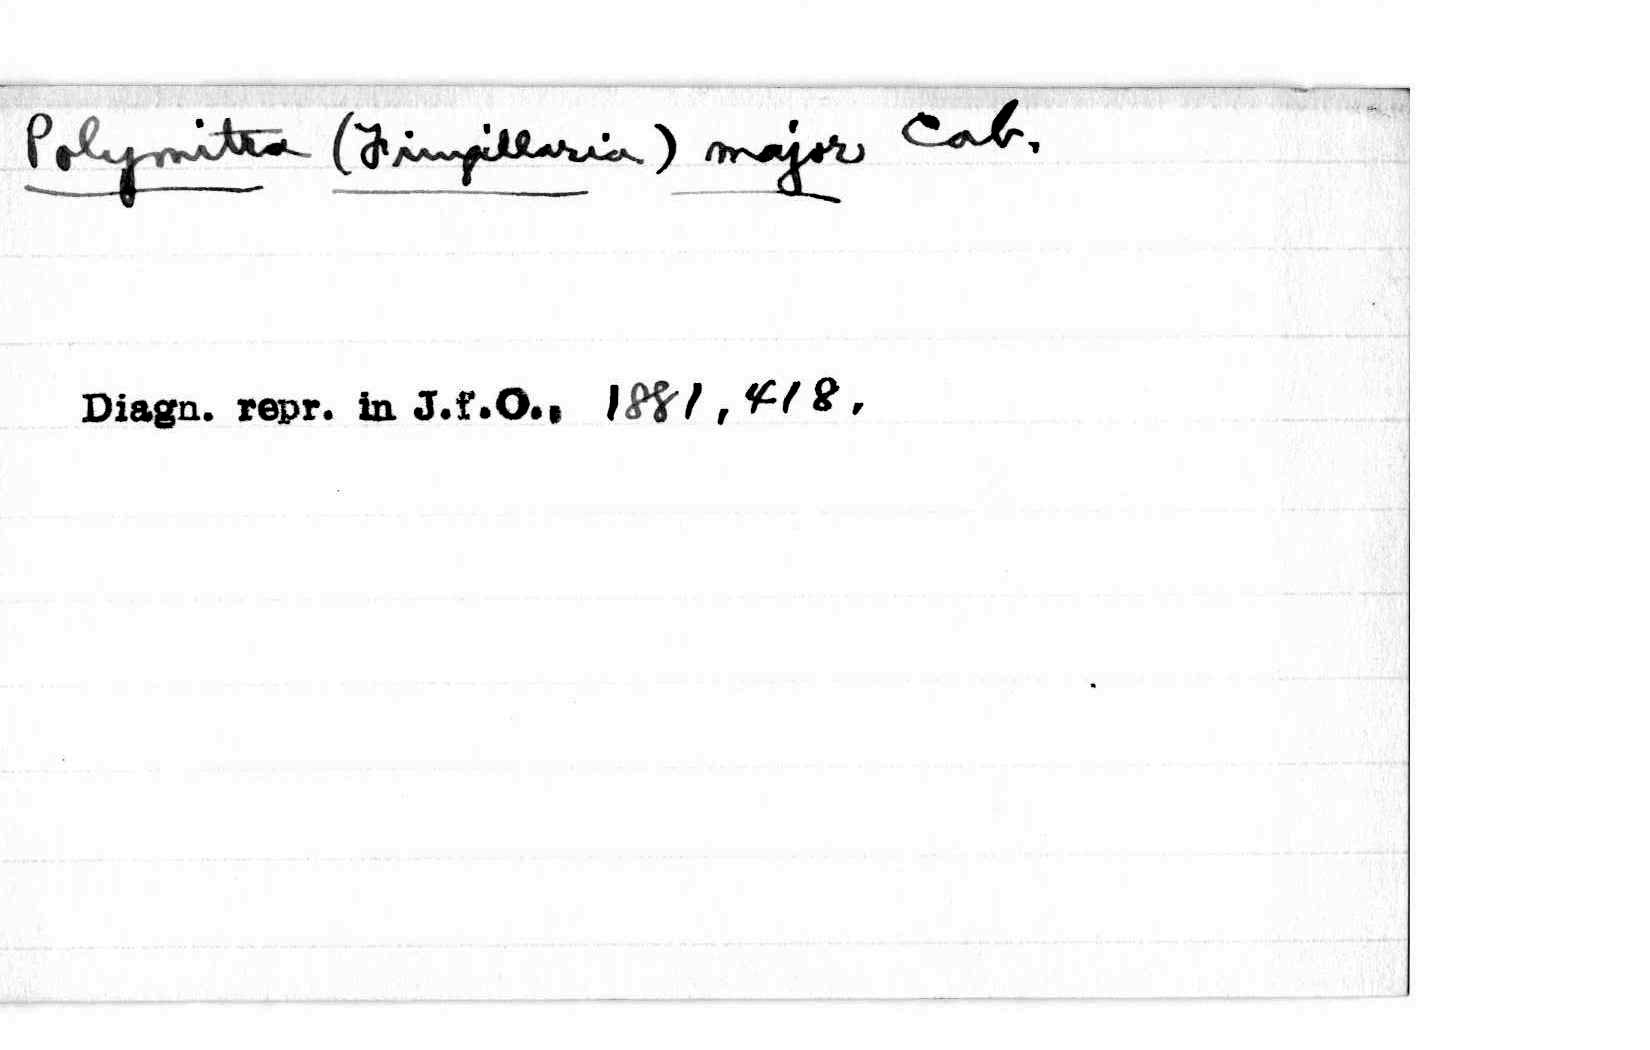 Polymitra (Fringillaria) major Cab.
Diagn. repr. in J.f.O., 1881, 418,